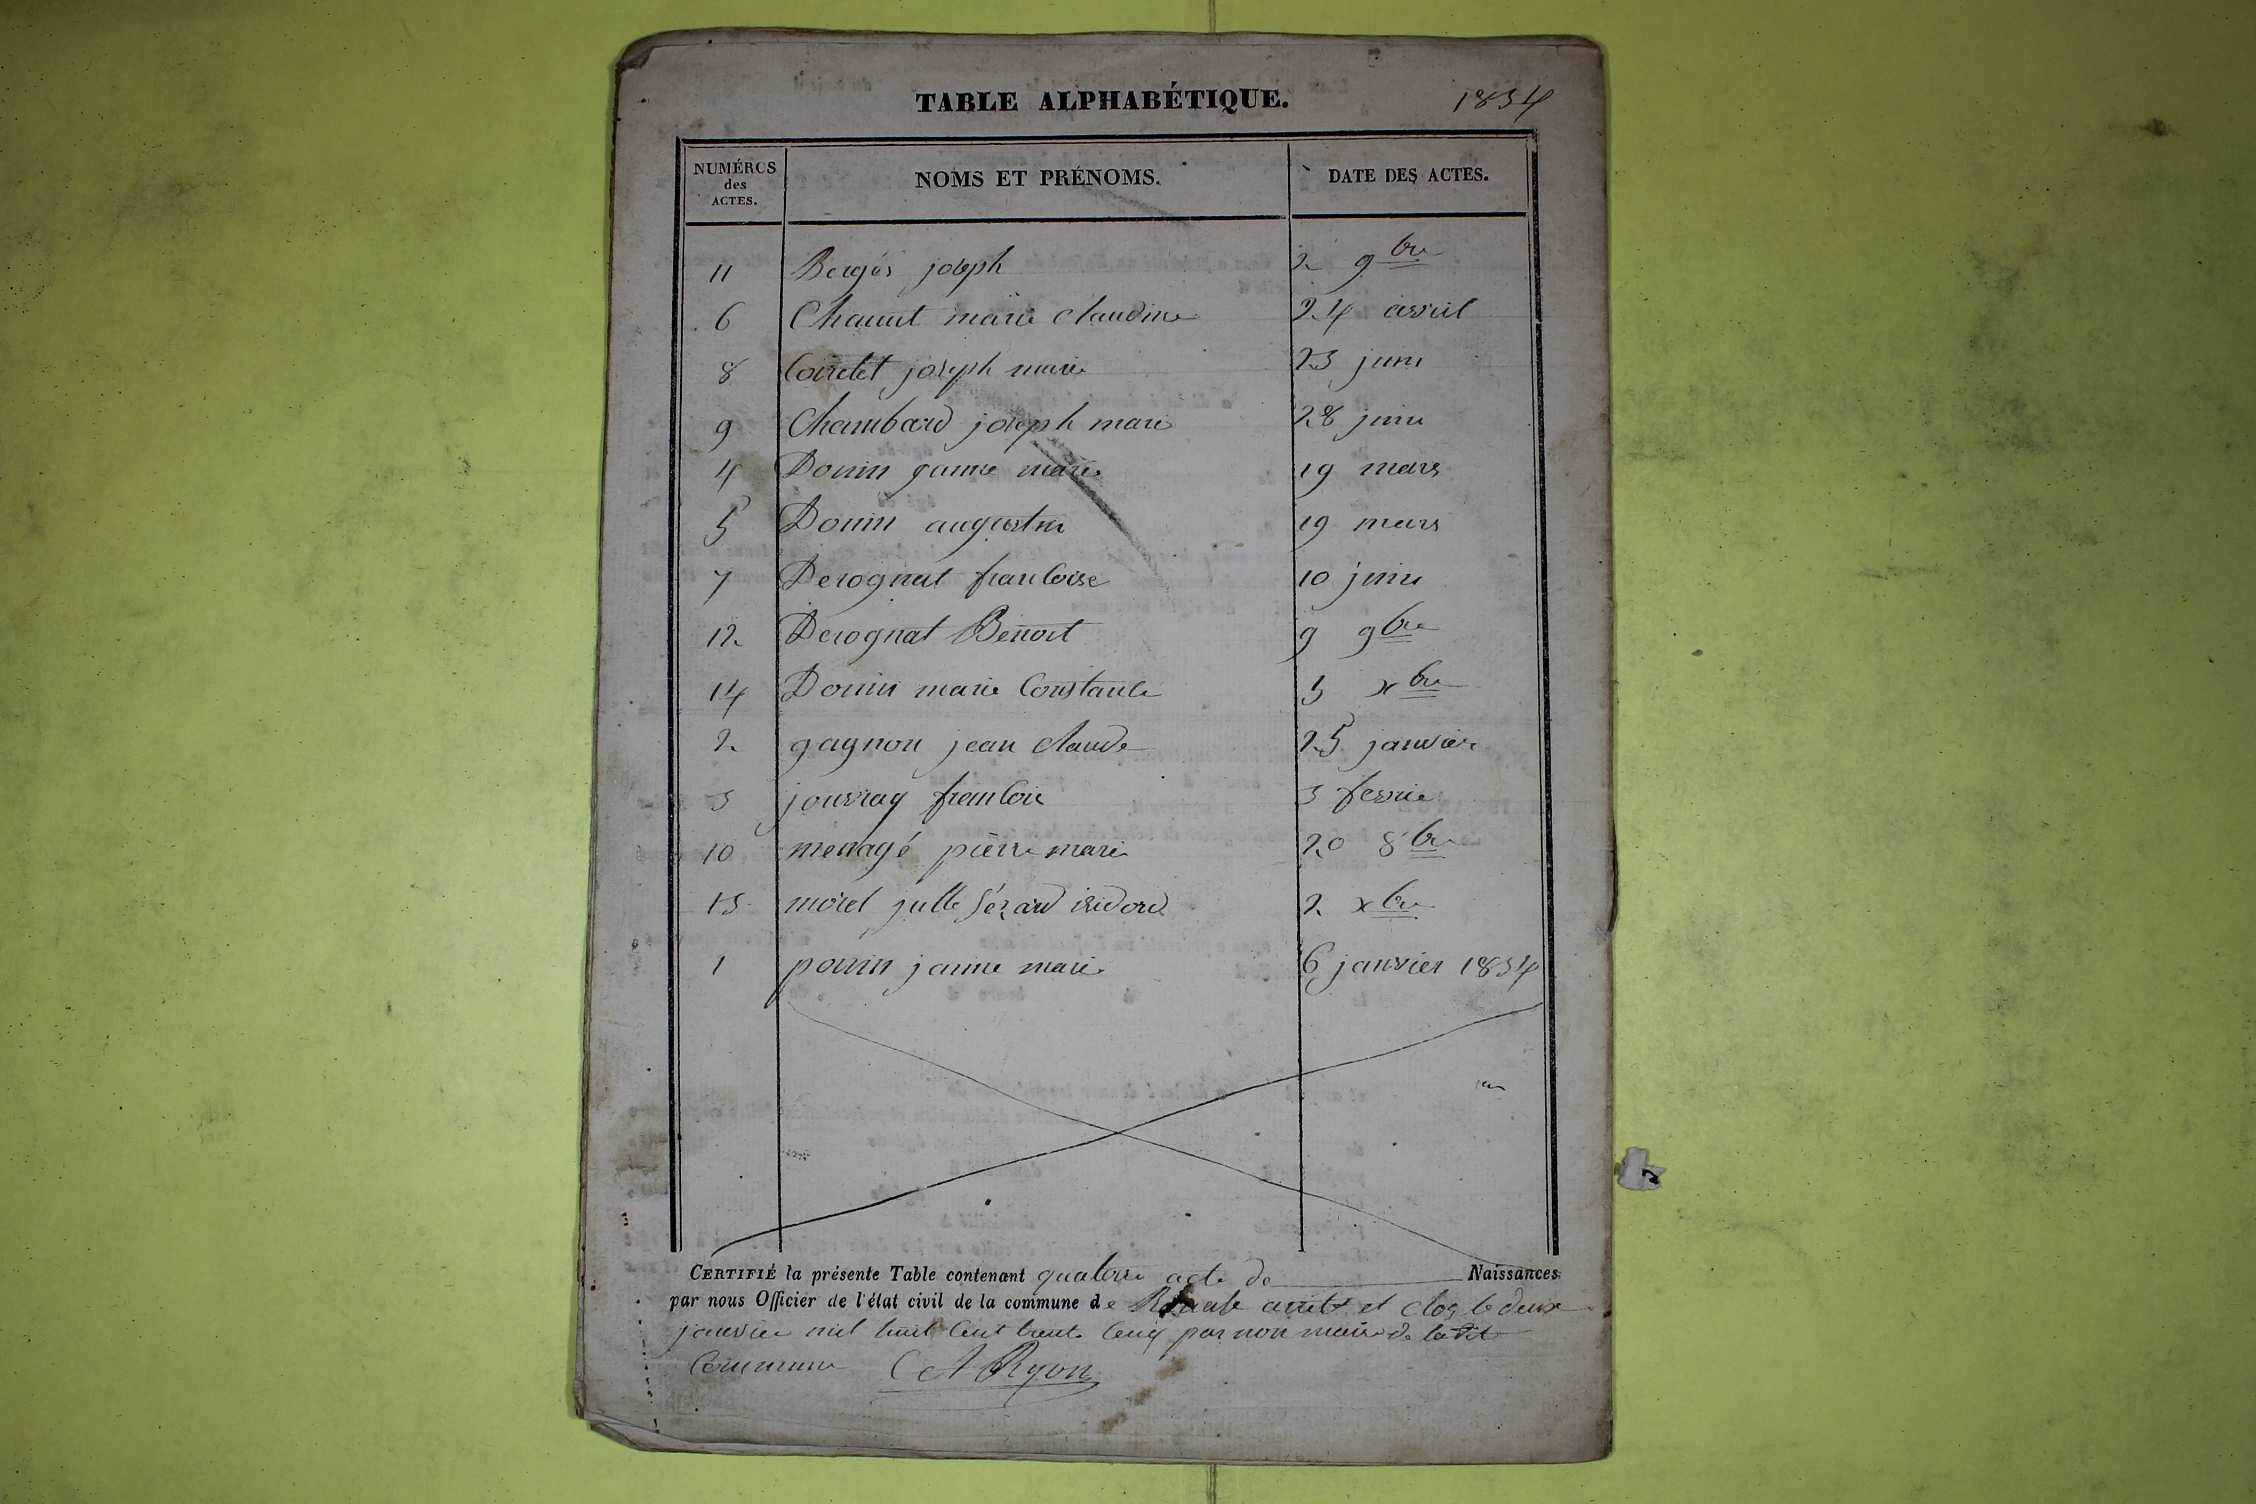 TABLE ALPHABÉTIQUE. 1834
NUMÉROS des ACTES. NOMS ET PRÉNOMS. DATE DES ACTES.
11 Bergés joseph 2 9bre
6 Chaunt marie claudine 24 avril
8 Cointet joseph marie 23 juin
9 Chambard joseph marie 28 juin
4 Donin janne marie 19 mars
5 Donin augustin 19 mars
7 Derognat francoise 10 juin
12 Derognat Benoit 9 9bre
14 Donin marie Constance 5 xbre
2 gagnon jean claude 25 janvier
3 jouvray francois 3 fevrie
10 menagé pierre marie 20 8bre
13 morel julle isidord 2 xbre
1 ponin janne marie 6 janvier 1834
CERTIFIÉ la présente Table contenant quatorze acte de Naissances
par nous Officier de l'état civil de la commune de arrete et clos le deux
janvier mil huit cent trente cenq par nou maire de ladit
Commune Ryon